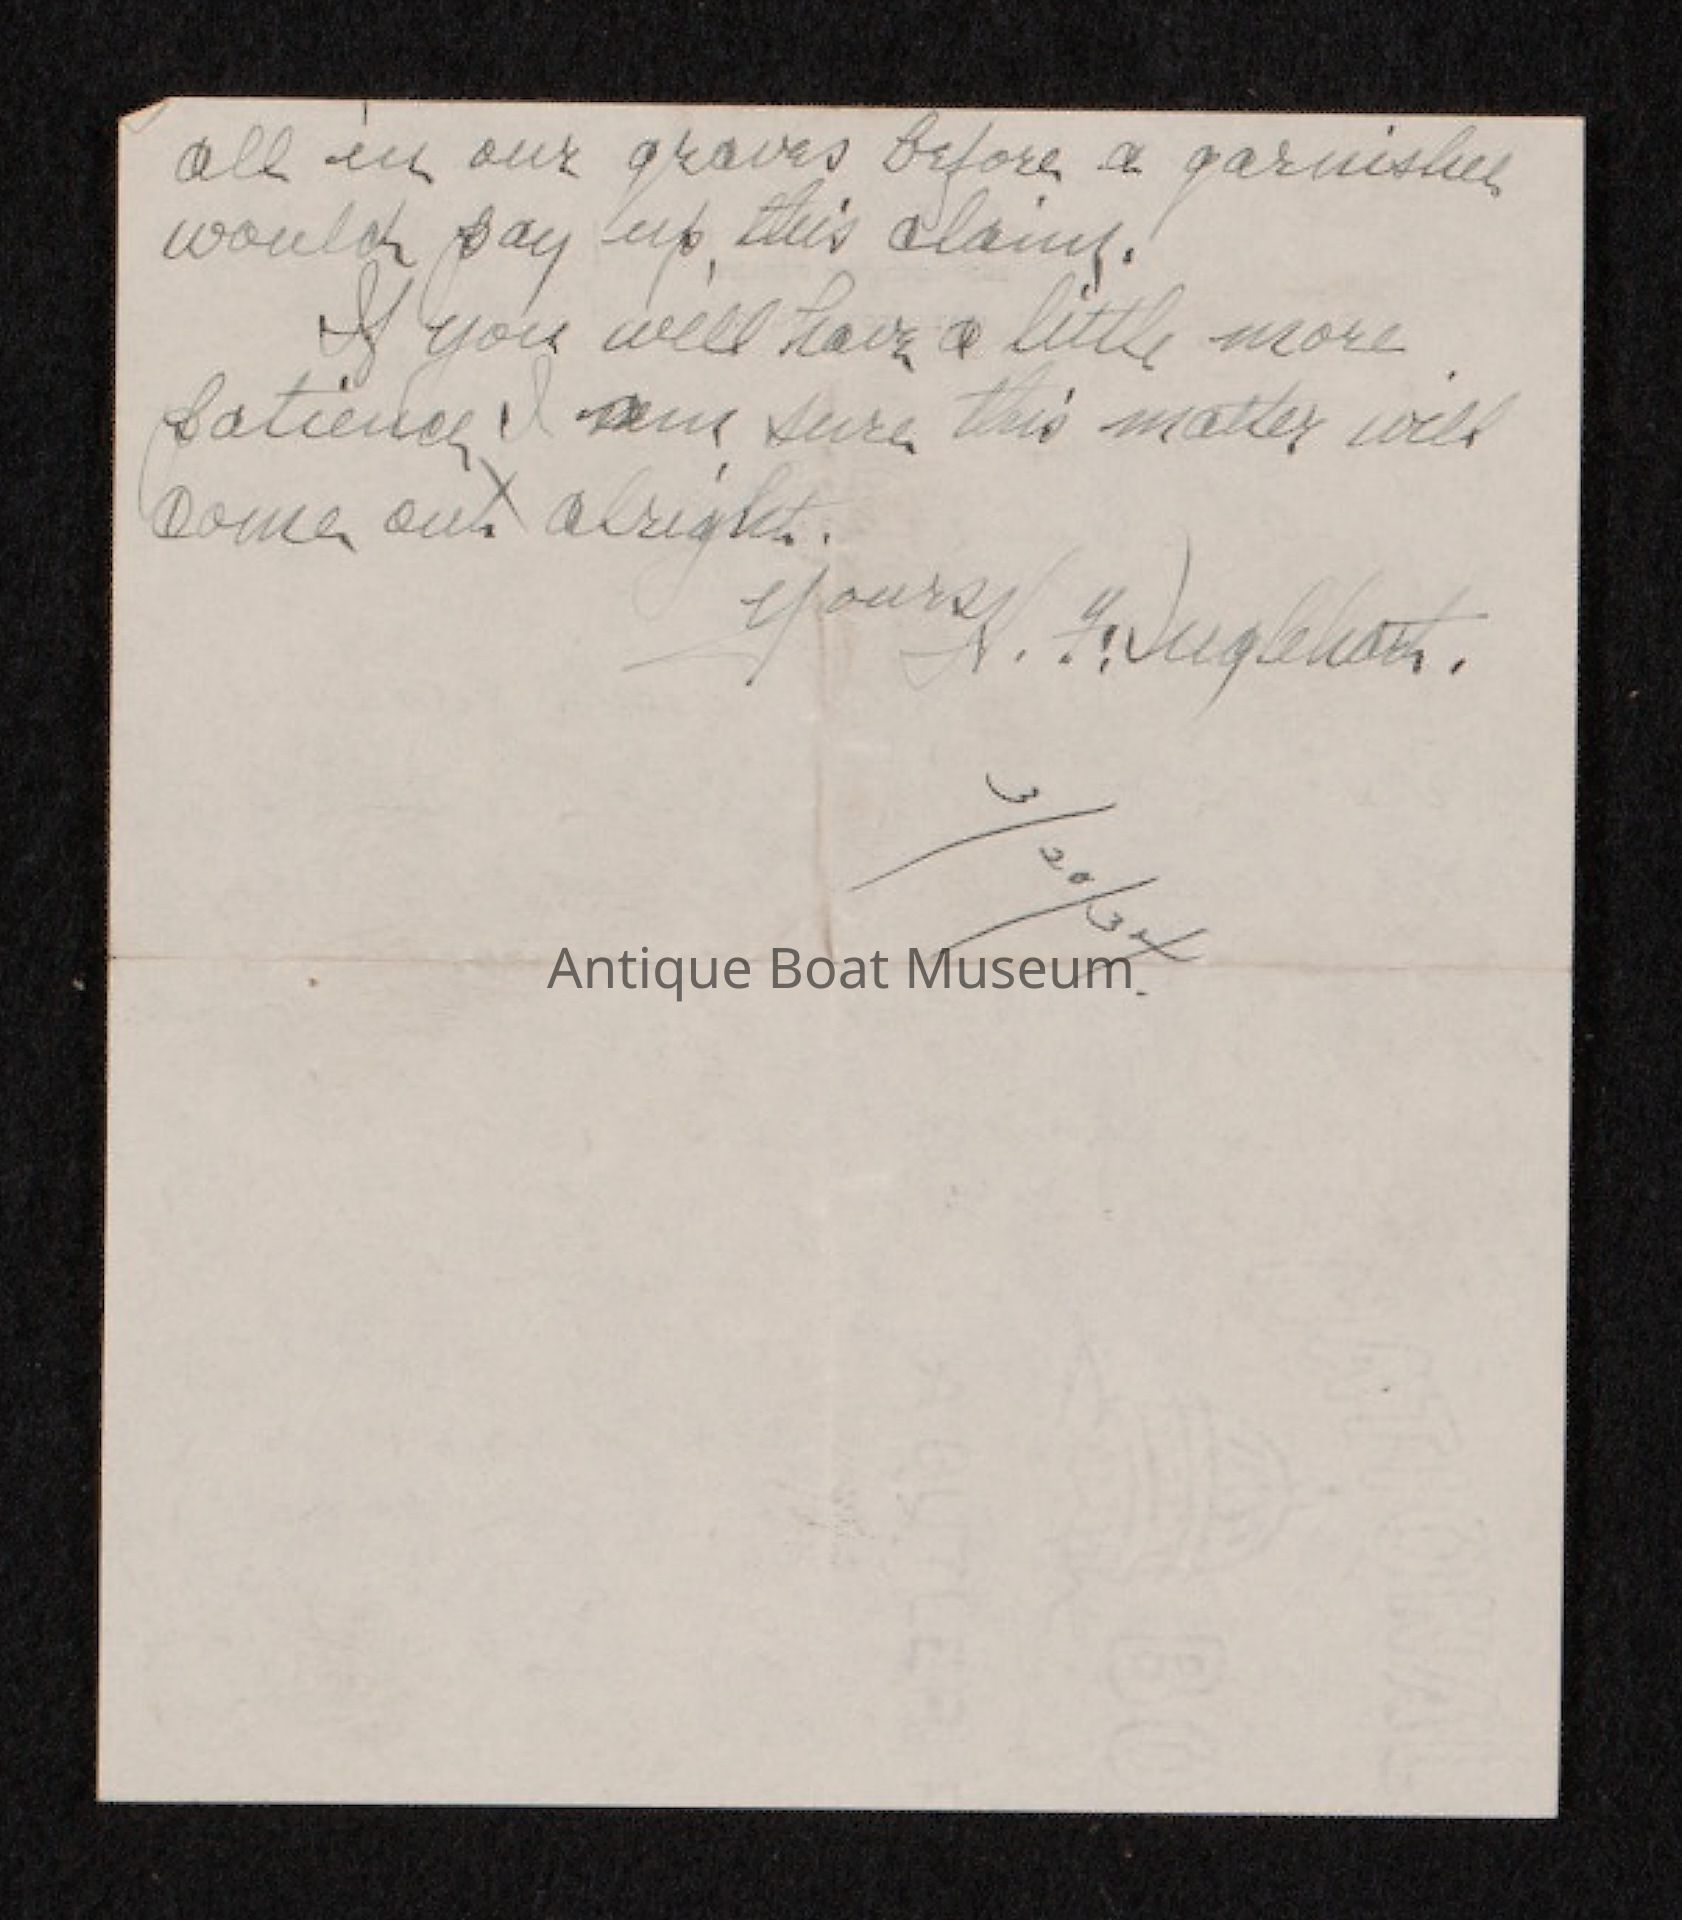 all in our graves before a garnishee
would pay up this claim.
If you will have a little more
patience I am sure this matter will
come out alright.
Yours
N. F. Inglehart.
3/20/34
Antique Boat Museum